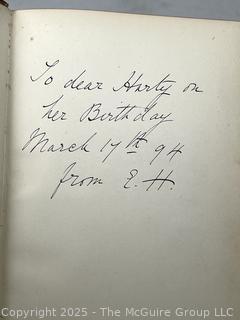 To dear Harty on
her Birthday
March 17th 94
from E. H.
Copyright 2025 - The McGuire Group LLC